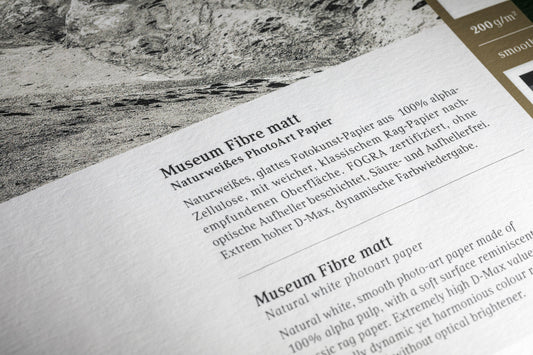 200g/m²
smooth
Museum Fibre matt
Naturweißes PhotoArt Papier
Naturweißes, glattes Fotokunst-Papier aus 100% alpha-
Zellulose, mit weicher, klassischem Rag-Papier nach-
empfundenen Oberfläche. FOGRA zertifiziert, ohne
optische Aufheller beschichtet. Säure- und Aufhellerfrei.
Extrem hoher D-Max, dynamische Farbwiedergabe.
Museum Fibre matt
Natural white photoart paper
Natural white, smooth photo-art paper made of
100% alpha pulp, with a soft surface reminiscent
rag paper. Extremely high D-Max value
dynamic yet harmonious colour
without optical brightener.